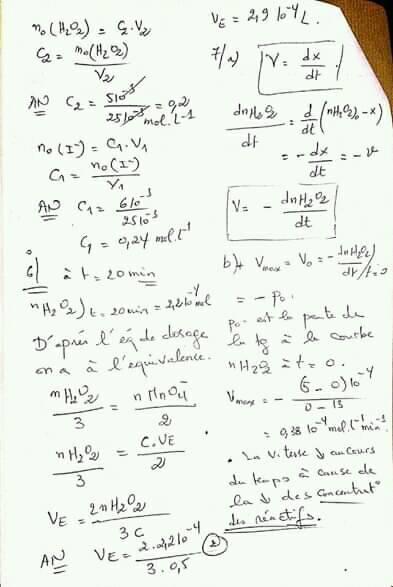 n₀(H₂O₂) = C₂.V₂
C₂ = n₀(H₂O₂) / V₂
AN C₂ = 5 10⁻³ / 25 10⁻³ = 0,2 mol.L⁻¹
n₀(I⁻) = C₁.V₁
C₁ = n₀(I⁻) / V₁
AN C₁ = 6 10⁻³ / 25 10⁻³
C₁ = 0,24 mol.L⁻¹
6/ à t = 20 min
nH₂O₂)t=20min = 2,2 10⁻⁴ mol
D'après l'éq de dosage
on a à l'équivalence.
nH₂O₂ / 3 = nMnO₄⁻ / 2
nH₂O₂ / 3 = C.VE / 2
VE = 2nH₂O₂ / 3C
AN VE = 2.2,2 10⁻⁴ / 3.0,5
2
VE = 2,9 10⁻⁴ L.
7/a) V = dx / dt.
dnH₂O₂ / dt = d/dt (nH₂O₂)₀ - x)
= - dx/dt = - v
V = - dnH₂O₂ / dt
b)+ Vmax = V₀ = - dnH₂O₂/dt /t=0
= - p₀.
p₀ est la pente de
la tg à la courbe
nH₂O₂ à t = 0.
Vmax = - (5 - 0)10⁻⁴ / 0 - 13
= 0,38 10⁻⁴ mol.L⁻¹min⁻¹
. La vitesse ↓ au cours
du temps à cause de
la ↓ des concentrat°
des réactifs.